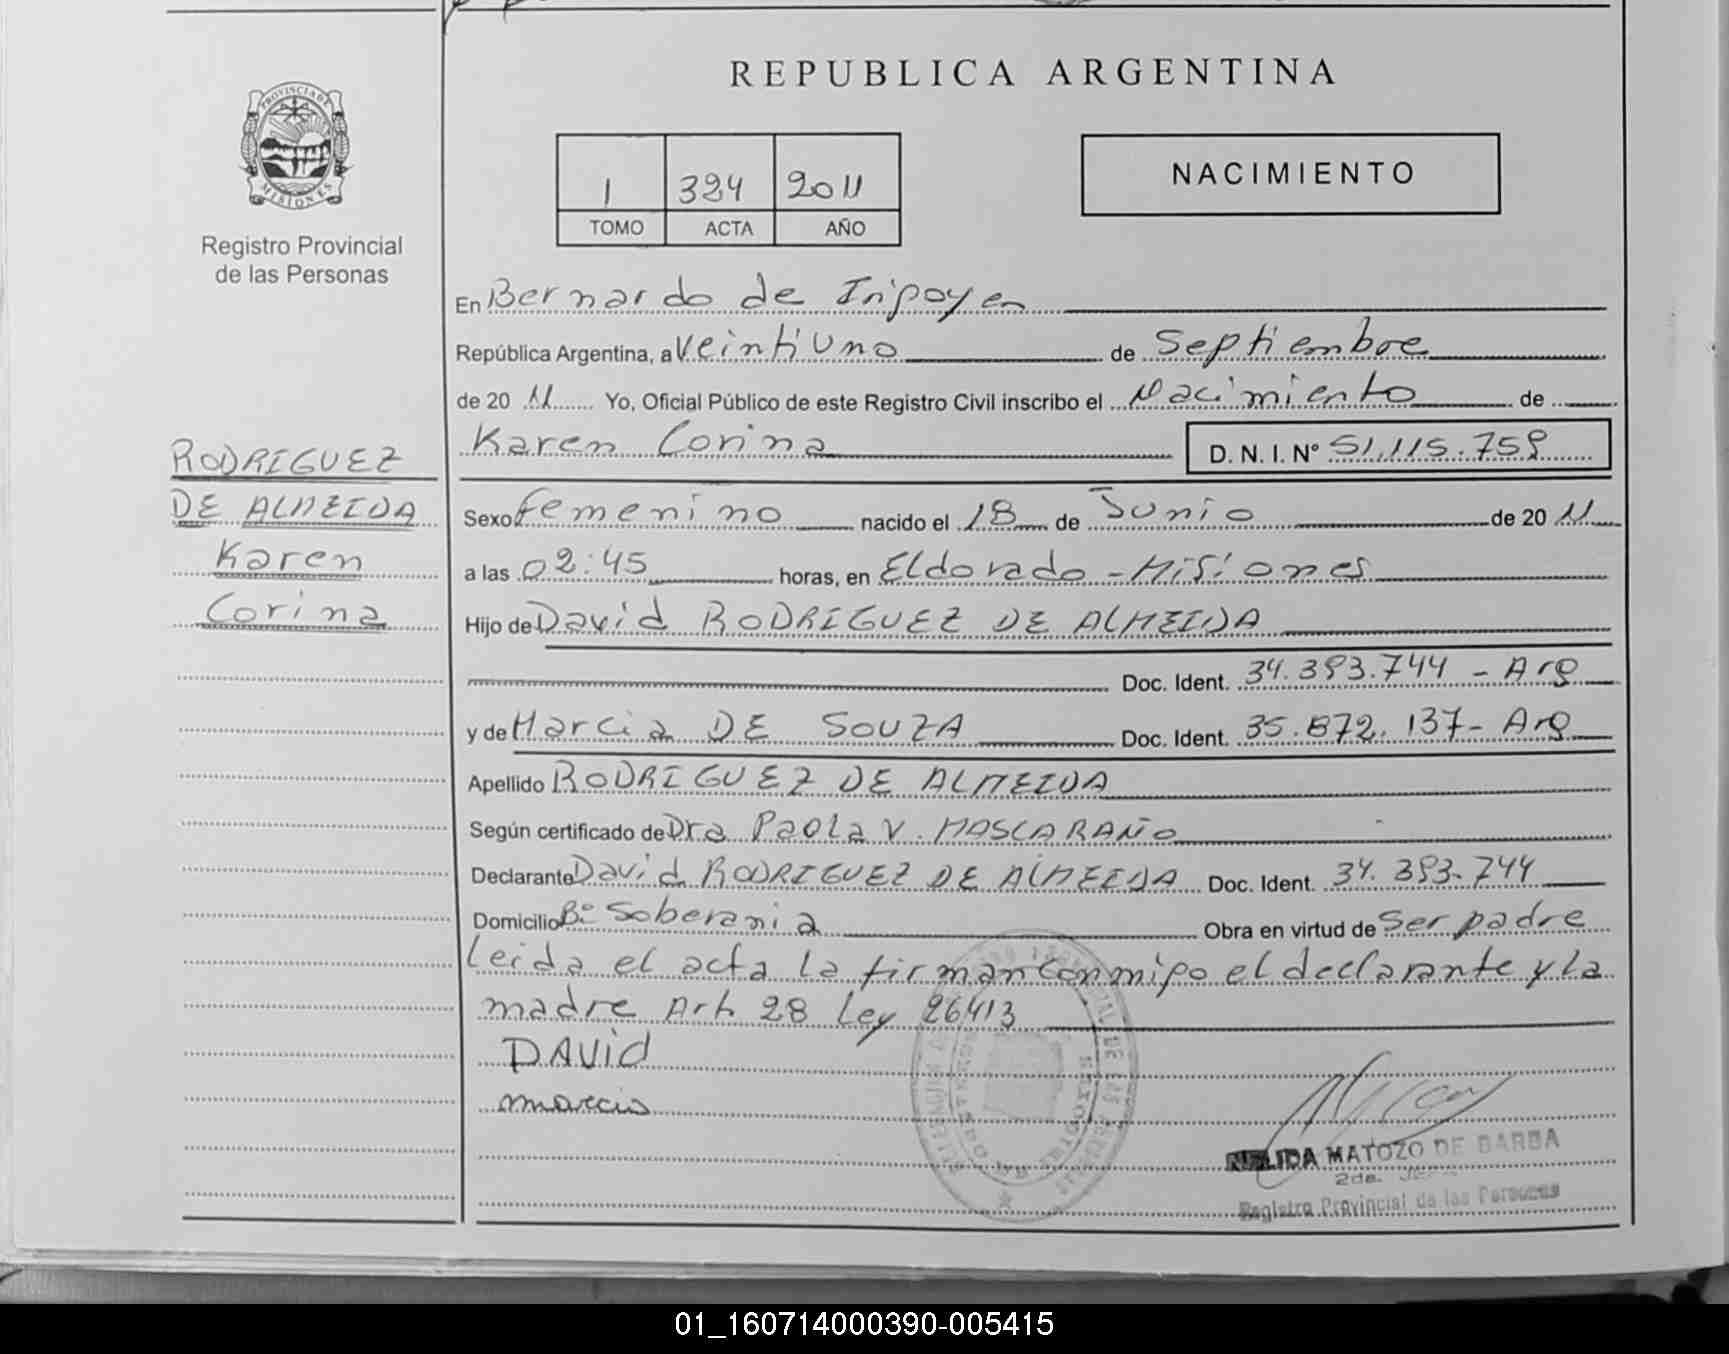 REPUBLICA ARGENTINA
PROVINCIA DE
MISIONES
Registro Provincial
de las Personas
1 324 2011
TOMO ACTA AÑO
NACIMIENTO
En Bernardo de Iripoyen
República Argentina, a Veintiuno de Septiembre
de 20 11 Yo, Oficial Público de este Registro Civil inscribo el Nacimiento de
Karen Corina D. N. I. Nº 51.115.759
RODRIGUEZ
DE ALMEIDA
Karen
Corina
Sexo Femenino nacido el 18 de Junio de 20 11
a las 02:45 horas, en Eldorado - Misiones
Hijo de David RODRIGUEZ DE ALMEIDA
Doc. Ident. 34.393.744 - Arg
y de Marcia DE SOUZA Doc. Ident. 35.872.137 - Arg
Apellido RODRIGUEZ DE ALMEIDA
Según certificado de Dra Paola V. MASCARAÑO
Declarante David RODRIGUEZ DE ALMEIDA Doc. Ident. 34.393.744
Domicilio Bº Soberania Obra en virtud de Ser padre
Leida el acta la firman conmigo el declarante y la
madre Art. 28 Ley 26413
DAVID
marcia
MATOZO DE BARBA
2da.
Registro Provincial de las Personas
01_160714000390-005415